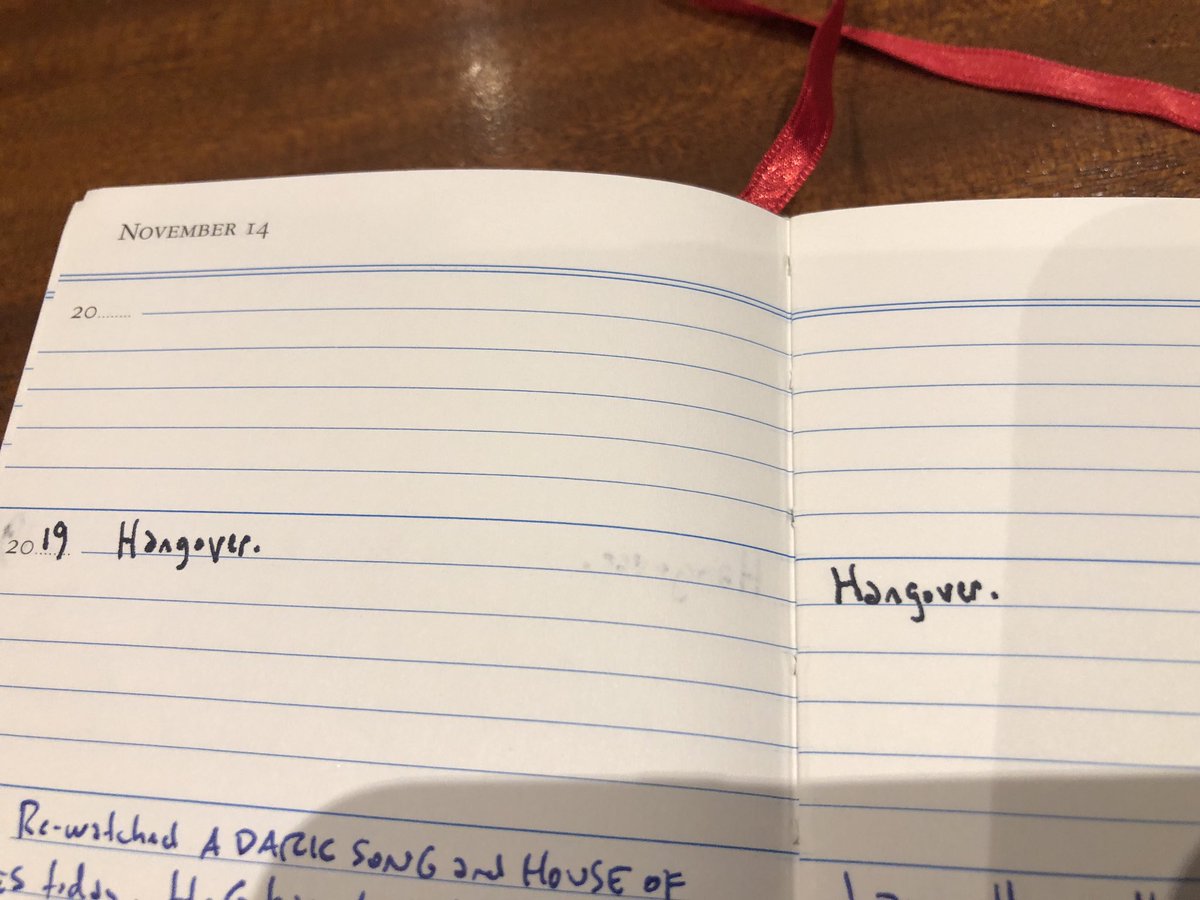 NOVEMBER 14
20........
2019 Hangover.
Hangover.
Re-watched A DARK SONG and HOUSE OF
today.